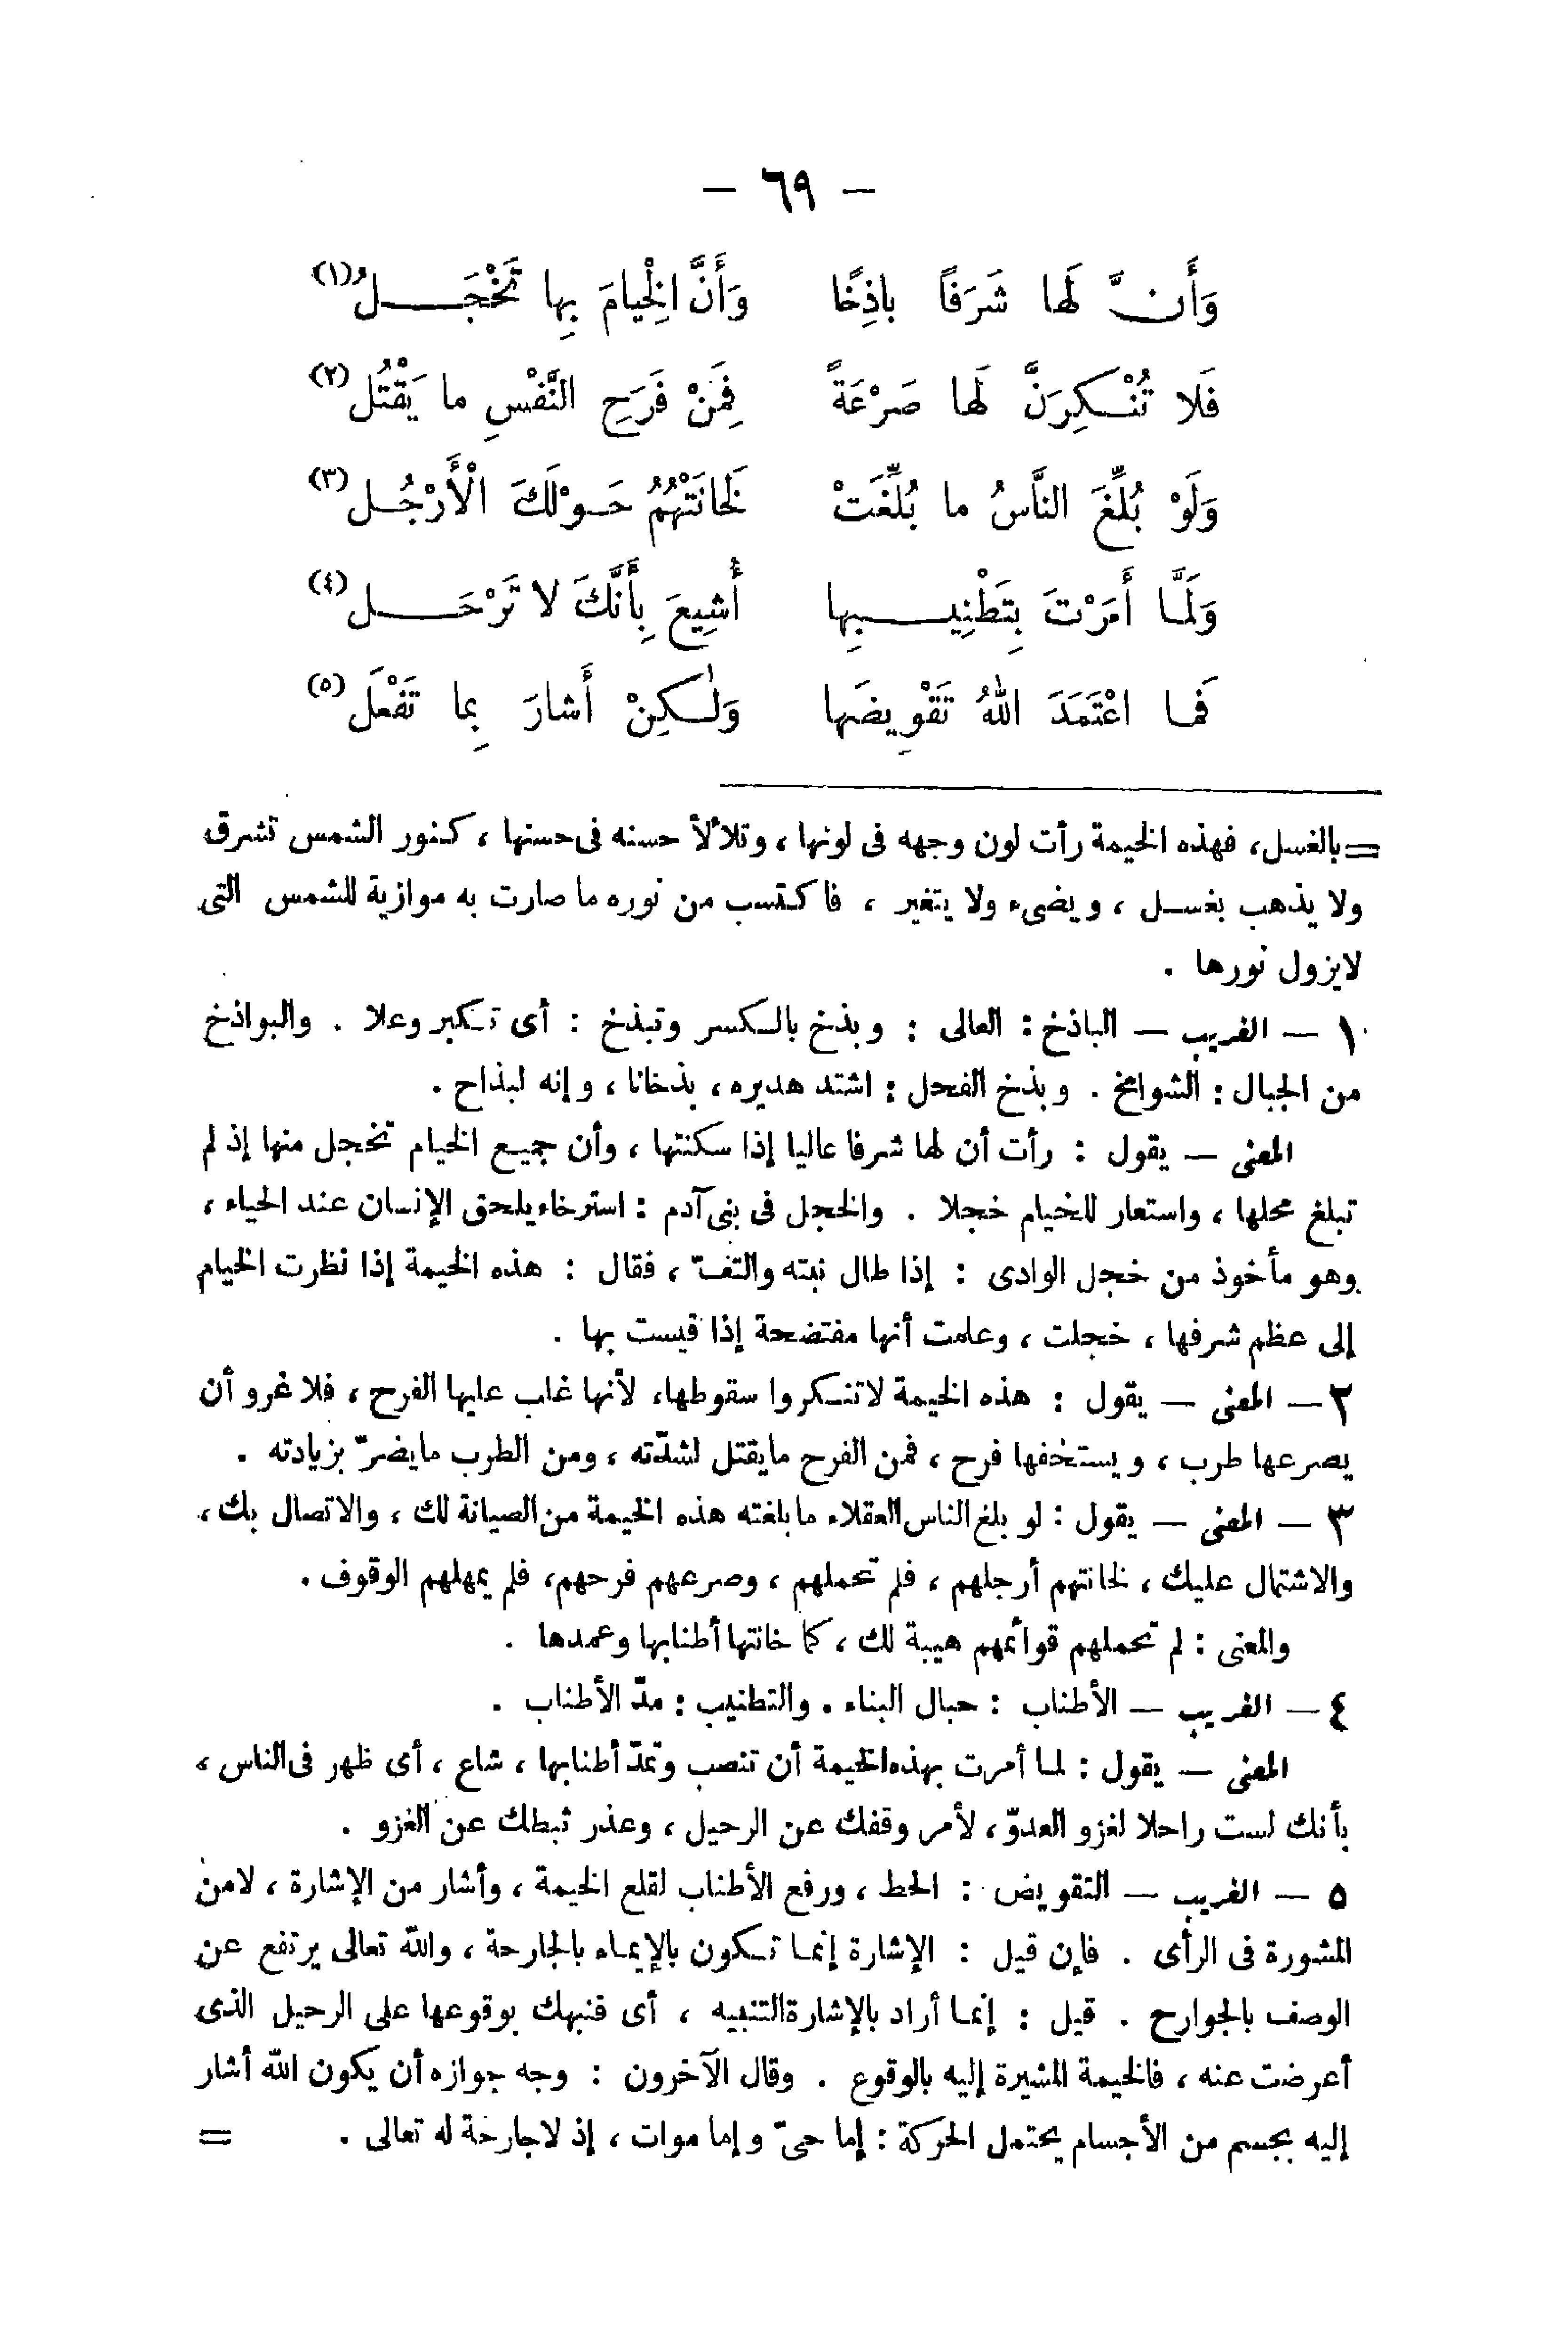 — ٦٩ —
وَأَنَّ لَها شَرَفاً باذِخًا وَأَنَّ الْخِيامَ بِها تَخْجَـلُ(١)
فَلا تُنْكِرَنَّ لَها صَرْعَةً فَمِنْ فَرَحِ النَّفْسِ ما يَقْتُلُ(٢)
وَلَوْ بُلِّغَ النَّاسُ ما بُلِّغَتْ لَخانَتْهُمُ حَـوْلَكَ الْأَرْجُـل(٣)
وَلَمَّا أَمَرْتَ بِتَطْنِيـبِها أُشِيعَ بِأَنَّكَ لا تَرْحَـل(٤)
فَما اعْتَمَدَ اللهُ تَقْوِيضَها وَلٰكِنْ أَشارَ بِما تَفْعَلُ(٥)
= بالغسل، فهذه الخيمة رأت لون وجهه فى لونها ، وتلألأ حسنه فى حسنها ، كنور الشمس تشرق
ولا يذهب بغسل ، ويضىء ولا يتغير ، فاكتسب من نوره ما صارت به موازية للشمس التى
لايزول نورها .
١ — الغريب — الباذخ : العالى : وبذخ بالكسر وتبذخ : أى تكبر وعلا . والبواذخ
من الجبال : الشوامخ . وبذخ الفحل : اشتد هديره ، بذخانا ، وإنه لبذاح .
المعنى — يقول : رأت أن لها شرفا عاليا إذا سكنتها ، وأن جميع الخيام تخجل منها إذ لم
تبلغ محلها ، واستعار للخيام خجلا . والخجل فى بنى آدم : استرخاء يلحق الإنسان عند الحياء ،
وهو مأخوذ من خجل الوادى : إذا طال نبته والتفّ ، فقال : هذه الخيمة إذا نظرت الخيام
إلى عظم شرفها ، خجلت ، وعلمت أنها مفتضحة إذا قيست بها .
٢ — المعنى — يقول : هذه الخيمة لاتنكروا سقوطها، لأنها غاب عليها الفرح ، فلا غرو أن
يصرعها طرب ، ويستخفها فرح ، فمن الفرح مايقتل لشدّته ، ومن الطرب مايضرّ بزيادته .
٣ — المعنى — يقول : لو بلغ الناس العقلاء مابلغته هذه الخيمة من الصيانة لك ، والاتصال بك ،
والاشتمال عليك ، لخانتهم أرجلهم ، فلم تحملهم ، وصرعهم فرحهم، فلم يمهلهم الوقوف .
والمعنى : لم تحملهم قوائمهم هيبة لك ، كما خانتها أطنابها وعمدها .
٤ — الغريب — الأطناب : حبال البناء . والتطنيب : مدّ الأطناب .
المعنى — يقول : لما أمرت بهذه الخيمة أن تنصب وتمدّ أطنابها ، شاع ، أى ظهر فى الناس ،
بأنك لست راحلا لغزو العدوّ ، لأمر وقفك عن الرحيل ، وعذر ثبطك عن الغزو .
٥ — الغريب — التقويض : الحط ، ورفع الأطناب لقلع الخيمة ، وأشار من الإشارة ، لامن
المشورة فى الرأى . فإن قيل : الإشارة إنما تكون بالإيماء بالجارحة ، والله تعالى يرتفع عن
الوصف بالجوارح . قيل : إنما أراد بالإشارة التنبيه ، أى فنبهك بوقوعها على الرحيل الذى
أعرضت عنه ، فالخيمة المشيرة إليه بالوقوع . وقال الآخرون : وجه جوازه أن يكون الله أشار
إليه بجسم من الأجسام يحتمل الحركة : إما حىّ وإما موات ، إذ لاجارحة له تعالى . =